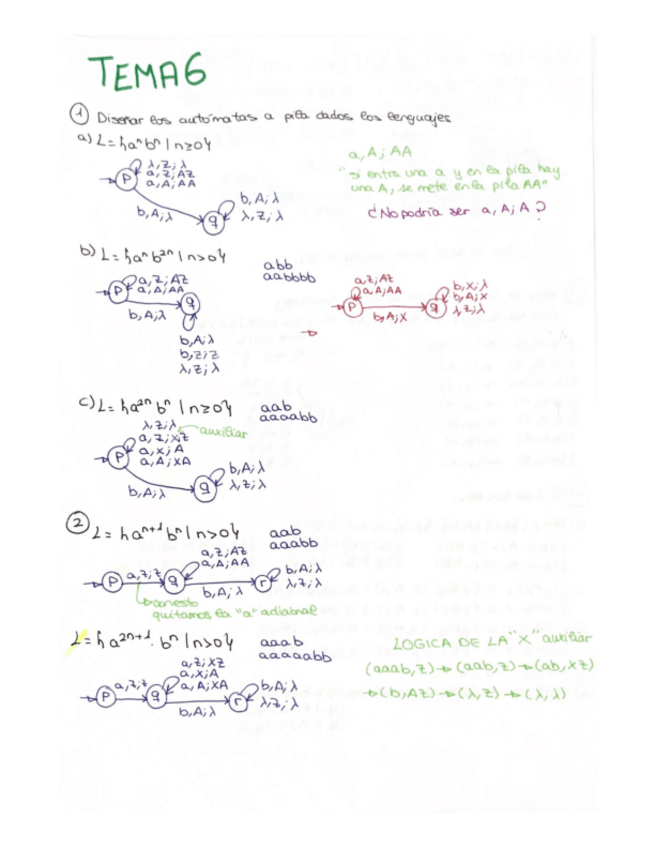 TEMA 6
① Diseñar los autómatas a pila dados los lenguajes
a) L = {aⁿbⁿ | n≥0}
λ, z; λ
a, z; Az
a, A; AA
P
b, A; λ
q
b, A; λ
λ, z; λ
a, A; AA
"si entra una a y en la pila hay
una A, se mete en la pila AA"
¿No podría ser a, A; A?
b) L = {aⁿb²ⁿ | n>0}
abb
aabbbb
a, z; Az
a, A; AA
P
b, A; λ
q
b, A; λ
b, z; z
λ, z; λ
a, z; Az
a, A; AA
P
b, A; X
q
b, X; λ
b, A; X
λ, z; λ
c) L = {a²ⁿbⁿ | n≥0}
aab
aaaabb
λ, z; λ
auxiliar
a, z; xz
a, x; A
a, A; XA
P
b, A; λ
q
b, A; λ
λ, z; λ
② L = {aⁿ⁺¹bⁿ | n>0}
aab
aaabb
P
a, z; z
q
a, z; Az
a, A; AA
b, A; λ
r
b, A; λ
λ, z; λ
con esto
quitamos la "a" adicional
L = {a²ⁿ⁺¹·bⁿ | n>0}
aaab
aaaaabb
P
a, z; z
q
a, z; Xz
a, x; A
a, A; XA
b, A; λ
r
b, A; λ
λ, z; λ
LOGICA DE LA "X" auxiliar
(aaab, z) → (aab, z) → (ab, Xz)
→ (b, Az) → (λ, z) → (λ, λ)